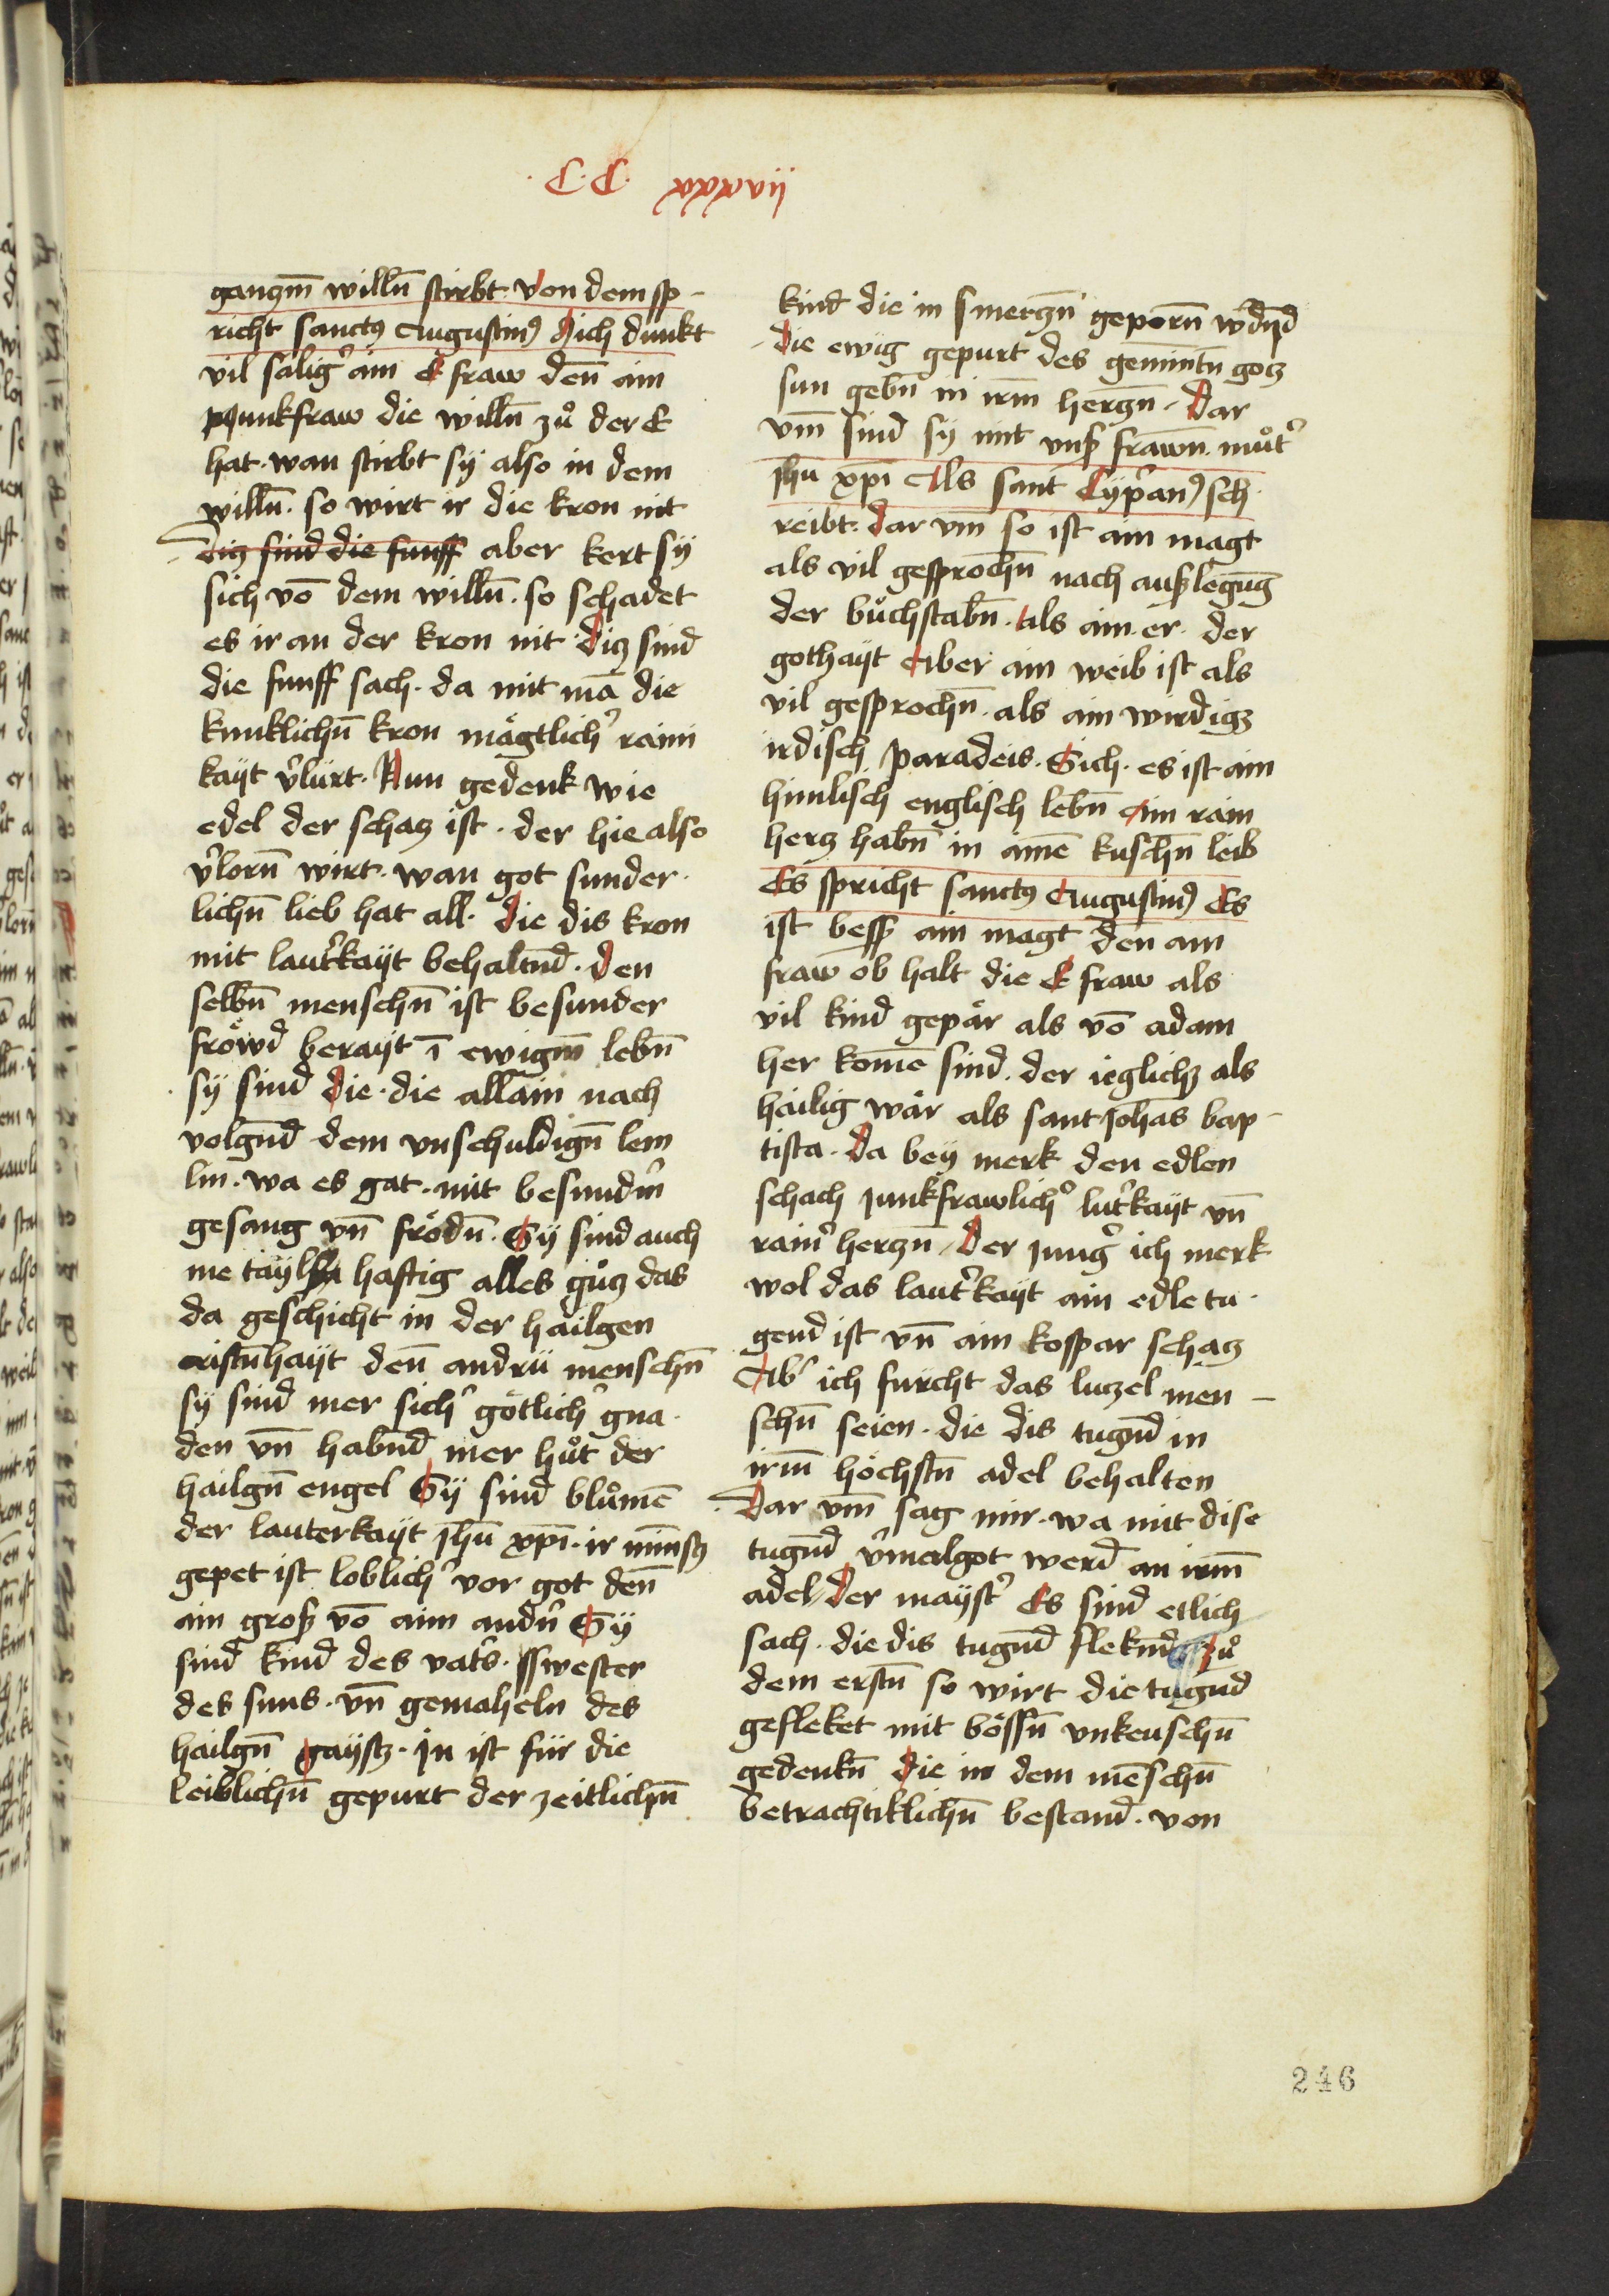 .C.C. xxxxvij
ganczm̄ willn̄ stirbt. Von dem sp-
richt sanctꝰ Augustinꝰ Mich dunkt
vil sälig᷑ ain E fraw den̄ ain
junkfraw die willn̄ zuͦ der E
hat. wan stirbt sÿ also in dem
willn̄. so wirt ir die kron nit
Dicz sind die funff aber kert sÿ
sich vō dem willn̄. so schadet
es ir an der kron nit. Dicz sind
die funff sach. da mit mā die
kunklichn̄ kron mägtlich᷑ raini
kaÿt v᷑lurt. Nun gedenk wie
edel der schacz ist. der hie also
v᷑lorn̄ wirt. wan got sunder
lichn̄ lieb hat all. die dis kron
mit laut᷑kaÿt behaltn̄d. den
selbn̄ menschn̄ ist besunder
fröwd beraÿt ī ewigm̄ lebn̄
sÿ sind die. die allain nach
volgn̄d dem vnschuldign̄ lem
lin. wa es gat. mit besundrn̄
gesang vn̄ frödn̄. Sÿ sind auch
me taÿl haftig alles guͦcz das
da geschicht in der hailgen
cristn̄haÿt den̄ andrü menschn̄
sÿ sind mer sich᷑ götlich᷑ gna-
den vn̄ habn̄d mer huͦt der
hailgn̄ engel Sÿ sind bluͦmē
der lauterkaÿt jhū xpī. ir minstz
gepet ist loblich᷑ vor got den̄
ain groß vō aim andn᷑ Sÿ
sind kind des vat᷑s. swester
des suns. vn̄ gemaheln des
hailgn̄ gaÿstz. In ist für die
leiblichn̄ gepurt der zeitlichn̄
kind die in smerczn̄ geporn̄
die ewig gepurt des gemintn̄ gocz
sun gebn̄ in irm̄ herczn̄. Dar
vm̄ sind sÿ mit vnß frawn̄. muͦt᷑
jhū xpī Als sant Cÿp᷑anꝰ sch-
reibt. dar vm̄ so ist ain magt
als vil gesprochn̄ nach außlegūg
der buͦchstabn̄. Als ain. er. der
gothaÿt Aber ain weib ist als
vil gesprochn̄. als ain wirdigz
irdisch paradeis. Sich. es ist ain
himlisch englisch lebn̄ Ain rain
hercz habn̄ in aimē kuschn̄ leib
Es spricht sanctꝰ Augustinꝰ Es
ist bess᷑ ain magt den̄ ain
fraw ob halt die E fraw als
vil kind gepär als vō adam
her komē sind. der ieglichz als
hailig wär als sant johās bap-
tista. Da beÿ merk den edlen
schach junkfrawlich᷑ lut᷑kaÿt vn̄
rain᷑ herczn̄. Der jung᷑ ich merk
wol das laut᷑kaÿt ain edle tu-
gend ist vn̄ ain kospar schacz
Ab᷑ ich fürcht das luczel men-
schn̄ seien. die dis tugn̄d in
irm̄ höchstn̄ adel behalten
Dar vm̄ sag mir. wa mit dise
tugn̄d v᷑mäilgot werd an irm̄
adel. Der maÿst᷑ Es sind etlich
sach. die dis tugn̄d flekn̄d zuͦ
dem erstn̄ so wirt die tugn̄d
gefleket mit bössn̄ vnkeuschn̄
gedenkn̄ die in dem mēschn̄
betrachtiklichn̄ bestand. von
246